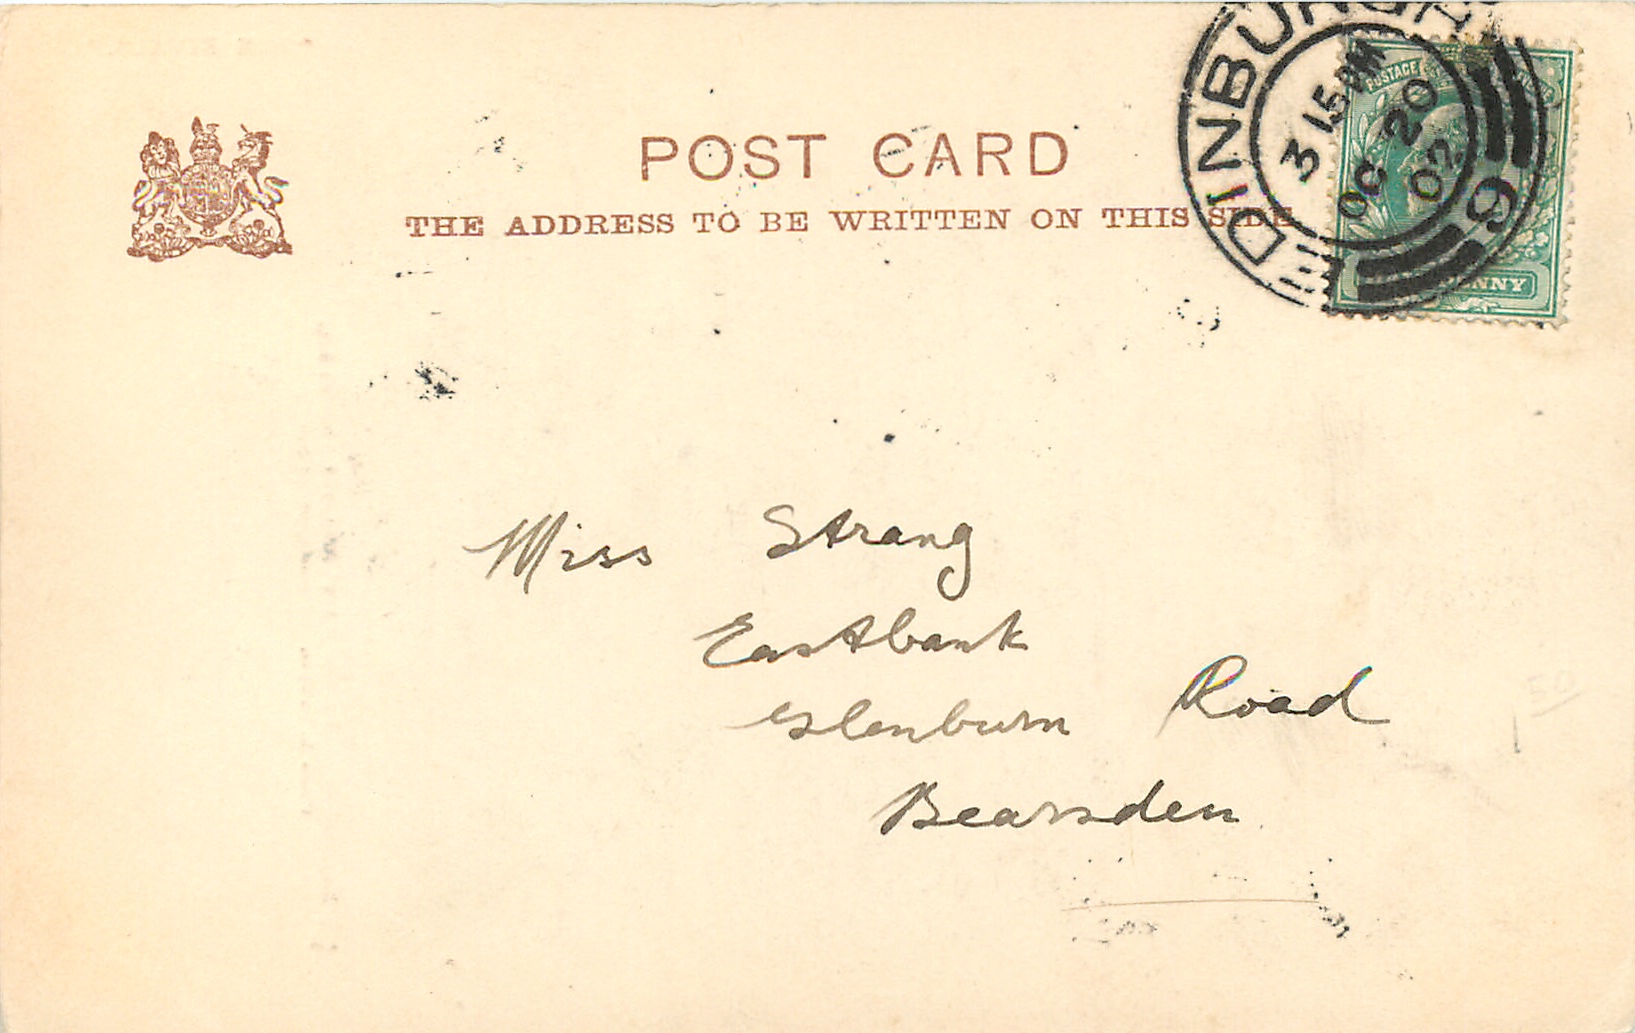 POST CARD
THE ADDRESS TO BE WRITTEN ON THIS SIDE
EDINBURGH
3 15 PM
OC 20
02
9
POSTAGE
Miss Strang
Eastbank
Glenburn Road
Bearsden
50